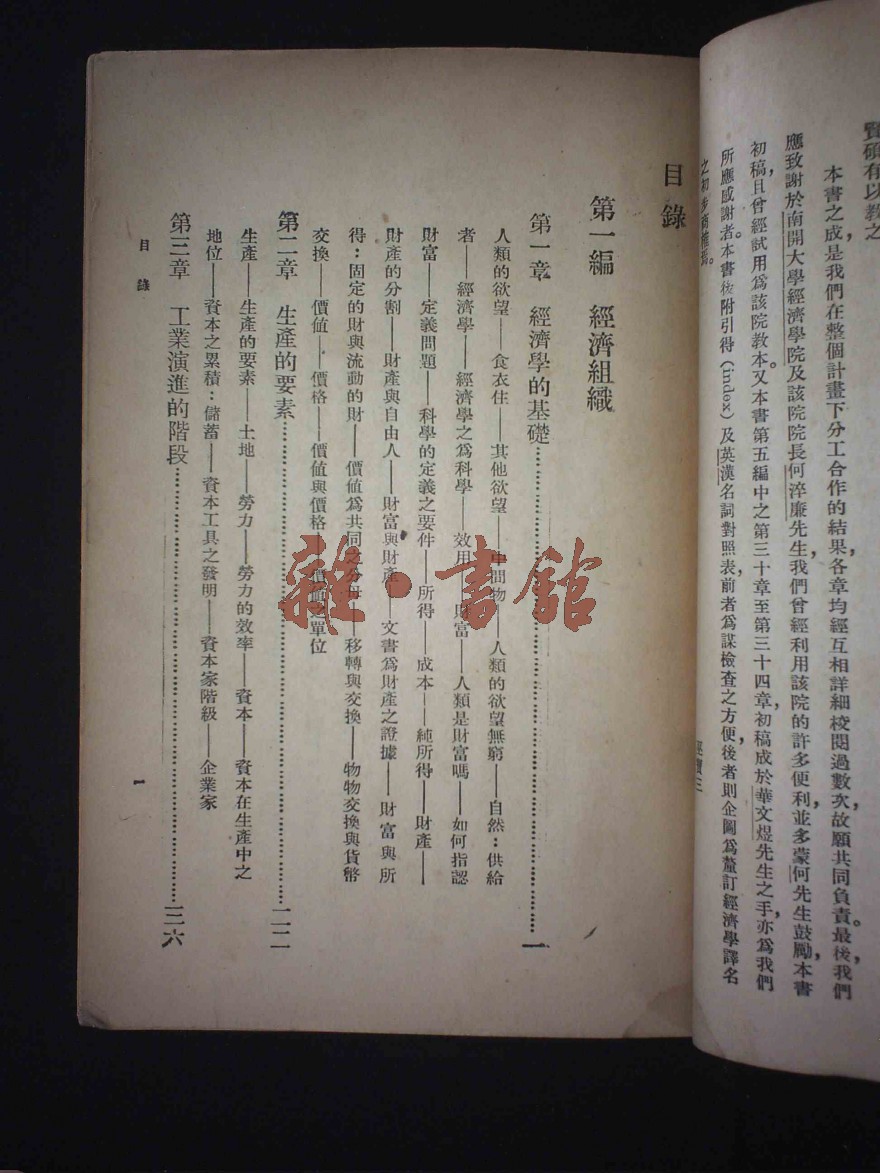 賢碩有以敎之
本書之成,是我們在整個計畫下分工合作的結果,各章均經互相詳細校閱過數次,故願共同負責。最後,我們
應致謝於南開大學經濟學院及該院院長何淬廉先生,我們曾經利用該院的許多便利,並多蒙何先生鼓勵,本書
初稿且曾經試用爲該院敎本。又本書第五編中之第三十章至第三十四章,初稿成於華文煜先生之手,亦爲我們
所應感謝者。本書後附引得(index)及英漢名詞對照表,前者爲謀檢查之方便,後者則企圖爲釐訂經濟學譯名
之初步商榷
目錄
第一編 經濟組織
第一章 經濟學的基礎……一
人類的欲望——食衣住——其他欲望——中間物——人類的欲望無窮——自然:供給
者——經濟學——經濟學之爲科學——效用——財富——人類是財富嗎——如何指認
財富——定義問題——科學的定義之要件——所得——成本——純所得——財產——
財產的分割——財產與自由人——財富與財產——文書爲財產之證據——財富與所
得:固定的財與流動的財——價値爲共同之分母——移轉與交換——物物交換與貨幣
交換——價値——價格——價値與價格——價値之單位
第二章 生產的要素……二二
生產——生產的要素——土地——勞力——勞力的效率——資本——資本在生產中之
地位——資本之累積:儲蓄——資本工具之發明——資本家階級——企業家
第三章 工業演進的階段……三六
目錄
一
雜·書館